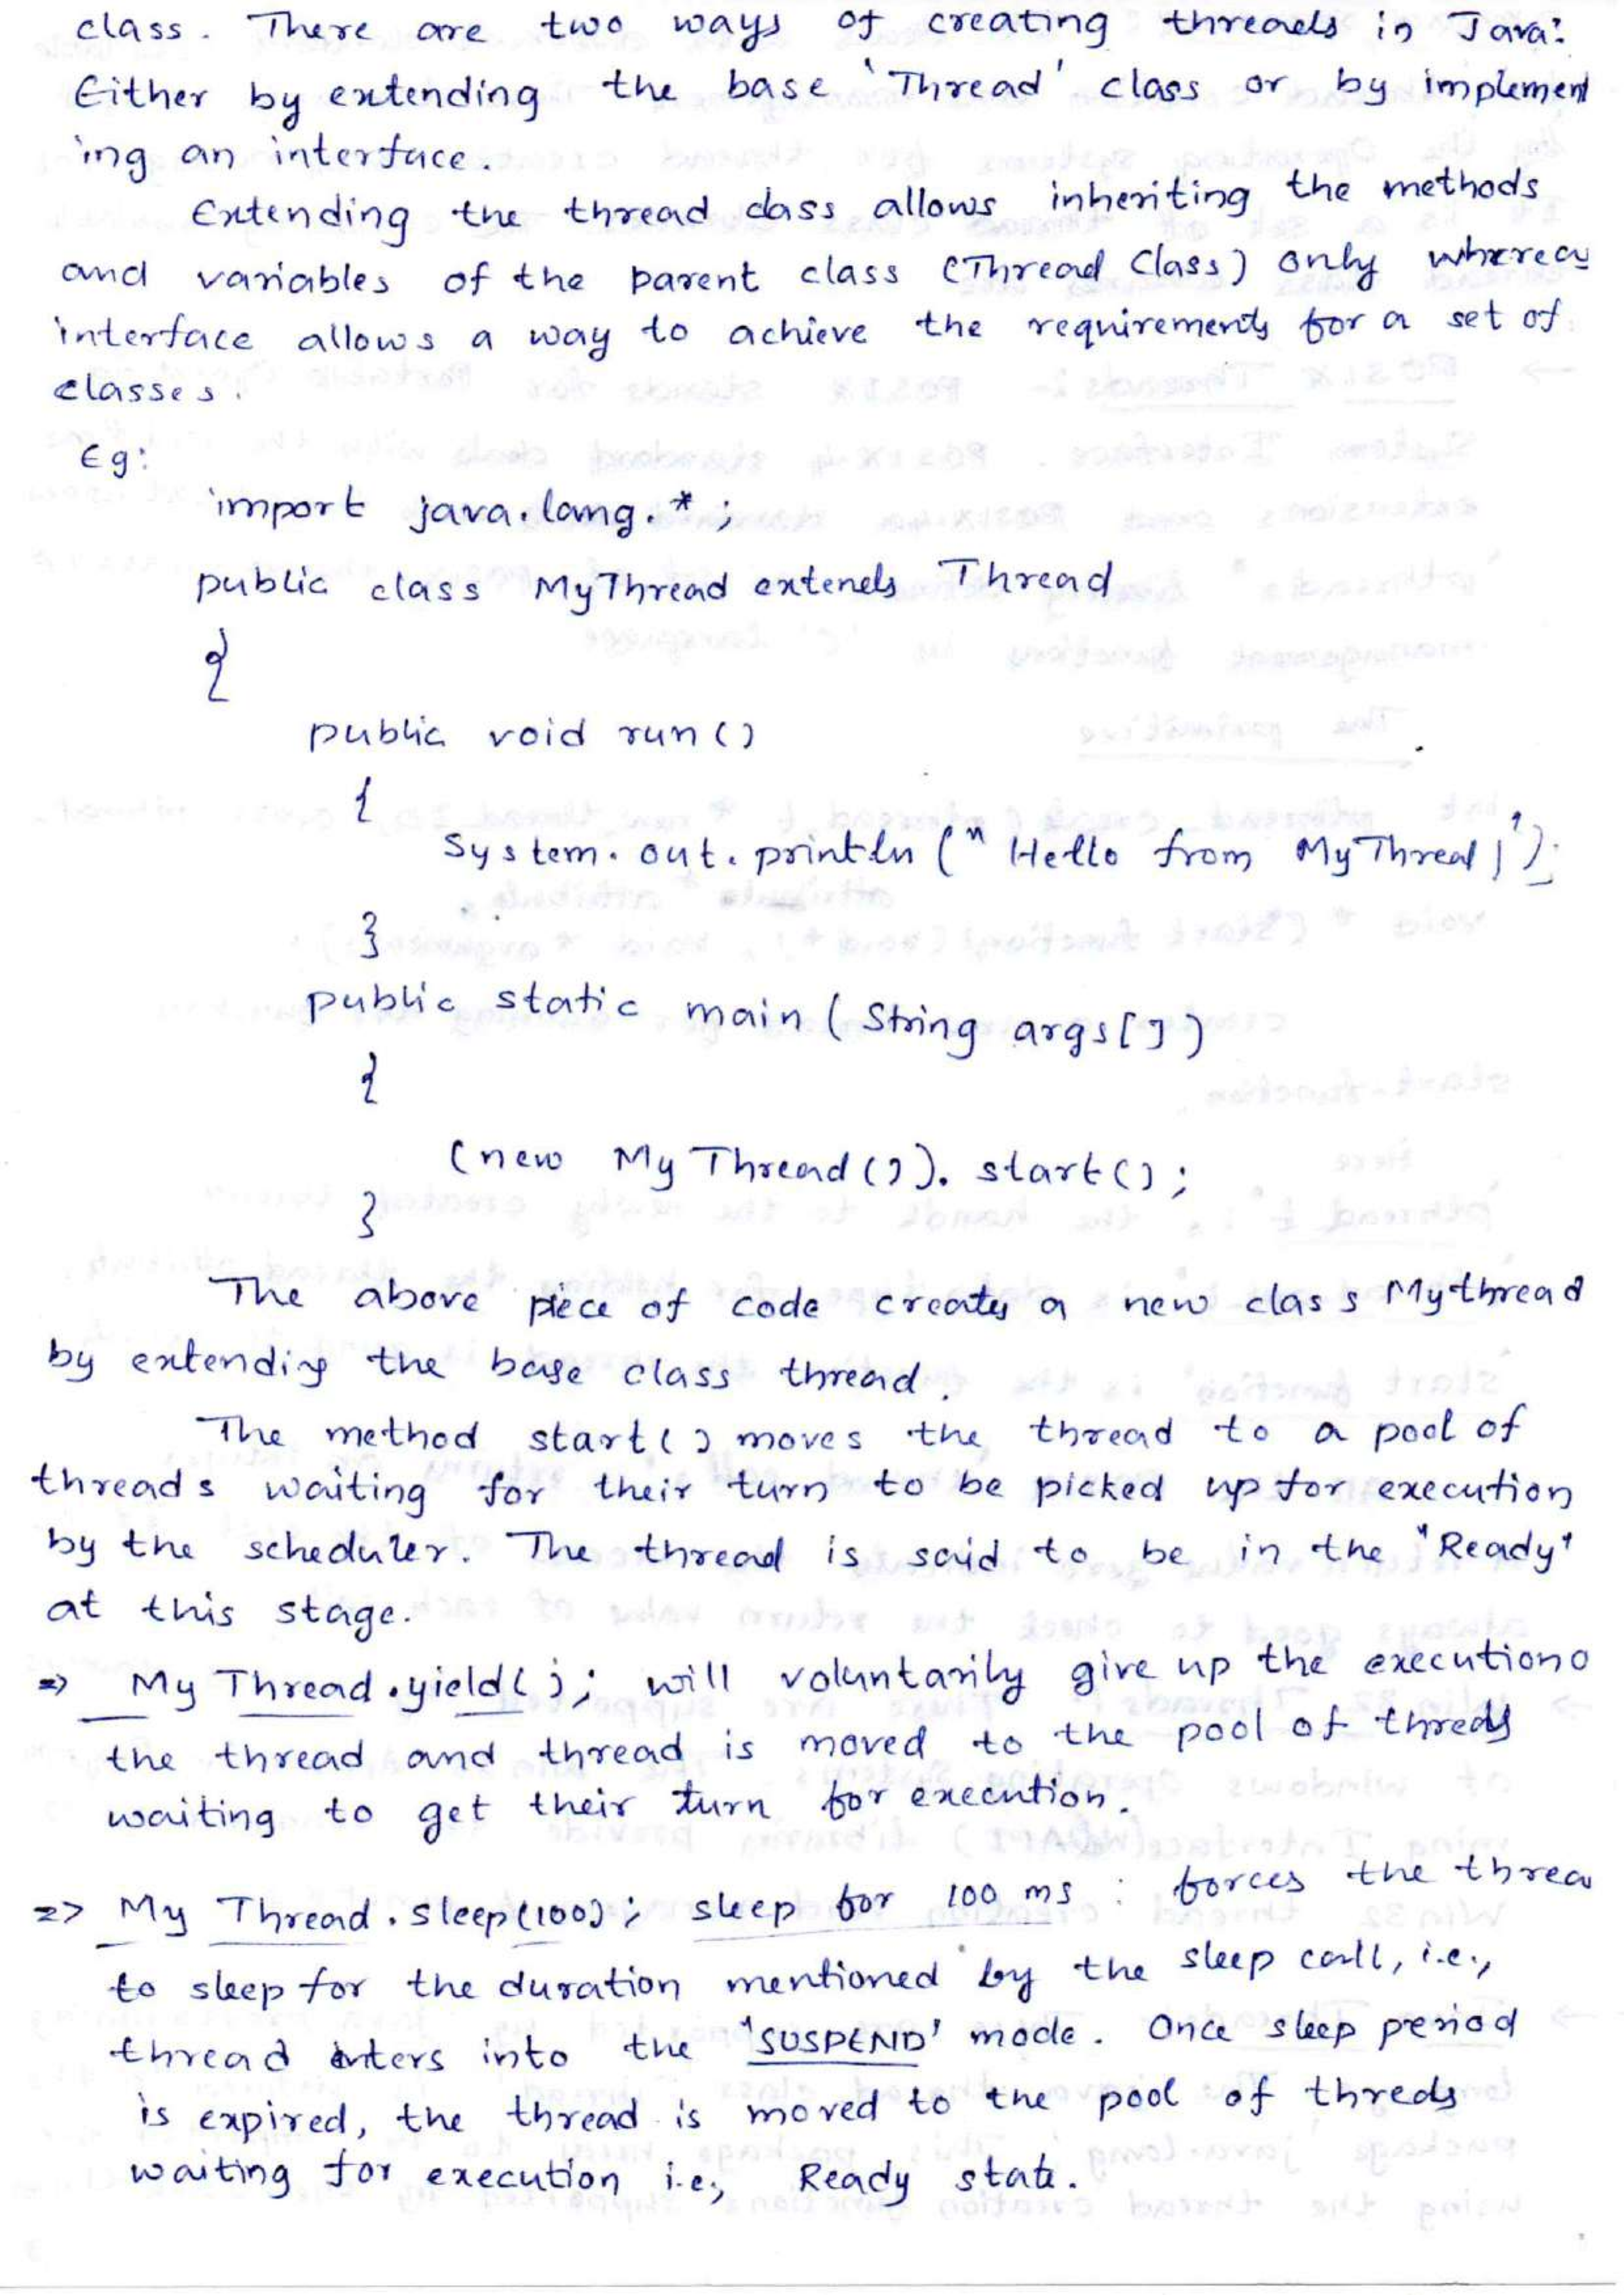 class. There are two ways of creating threads in Java:
Either by extending the base 'Thread' class or by implement
ing an interface.
Extending the thread class allows inheriting the methods
and variables of the parent class (Thread Class) only whereas
interface allows a way to achieve the requirements for a set of
classes.
Eg:
import java.lang.*;
public class MyThread extends Thread
{
public void run()
{
System.out.println("Hello from MyThread!");
}
public static main(String args[])
{
(new MyThread()).start();
}
The above piece of code creates a new class Mythread
by extending the base class thread.
The method start() moves the thread to a pool of
threads waiting for their turn to be picked up for execution
by the scheduler. The thread is said to be in the "Ready"
at this stage.
=> My Thread.yield(); will voluntarily give up the execution o
the thread and thread is moved to the pool of threds
waiting to get their turn for execution.
=> My Thread.sleep(100); sleep for 100 ms : forces the threa
to sleep for the duration mentioned by the sleep call, i.e.,
thread enters into the 'SUSPEND' mode. Once sleep period
is expired, the thread is moved to the pool of threds
waiting for execution i.e., Ready state.